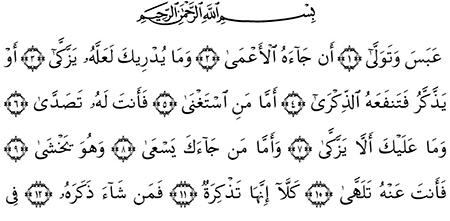 بِسْمِ ٱللَّهِ ٱلرَّحْمَٰنِ ٱلرَّحِيمِ
عَبَسَ وَتَوَلَّىٰٓ ﴿١﴾ أَن جَآءَهُ ٱلْأَعْمَىٰ ﴿٢﴾ وَمَا يُدْرِيكَ لَعَلَّهُۥ يَزَّكَّىٰٓ ﴿٣﴾ أَوْ
يَذَّكَّرُ فَتَنفَعَهُ ٱلذِّكْرَىٰٓ ﴿٤﴾ أَمَّا مَنِ ٱسْتَغْنَىٰ ﴿٥﴾ فَأَنتَ لَهُۥ تَصَدَّىٰ ﴿٦﴾
وَمَا عَلَيْكَ أَلَّا يَزَّكَّىٰ ﴿٧﴾ وَأَمَّا مَن جَآءَكَ يَسْعَىٰ ﴿٨﴾ وَهُوَ يَخْشَىٰ ﴿٩﴾
فَأَنتَ عَنْهُ تَلَهَّىٰ ﴿١٠﴾ كَلَّآ إِنَّهَا تَذْكِرَةٌ ﴿١١﴾ فَمَن شَآءَ ذَكَرَهُۥ ﴿١٢﴾ فِى